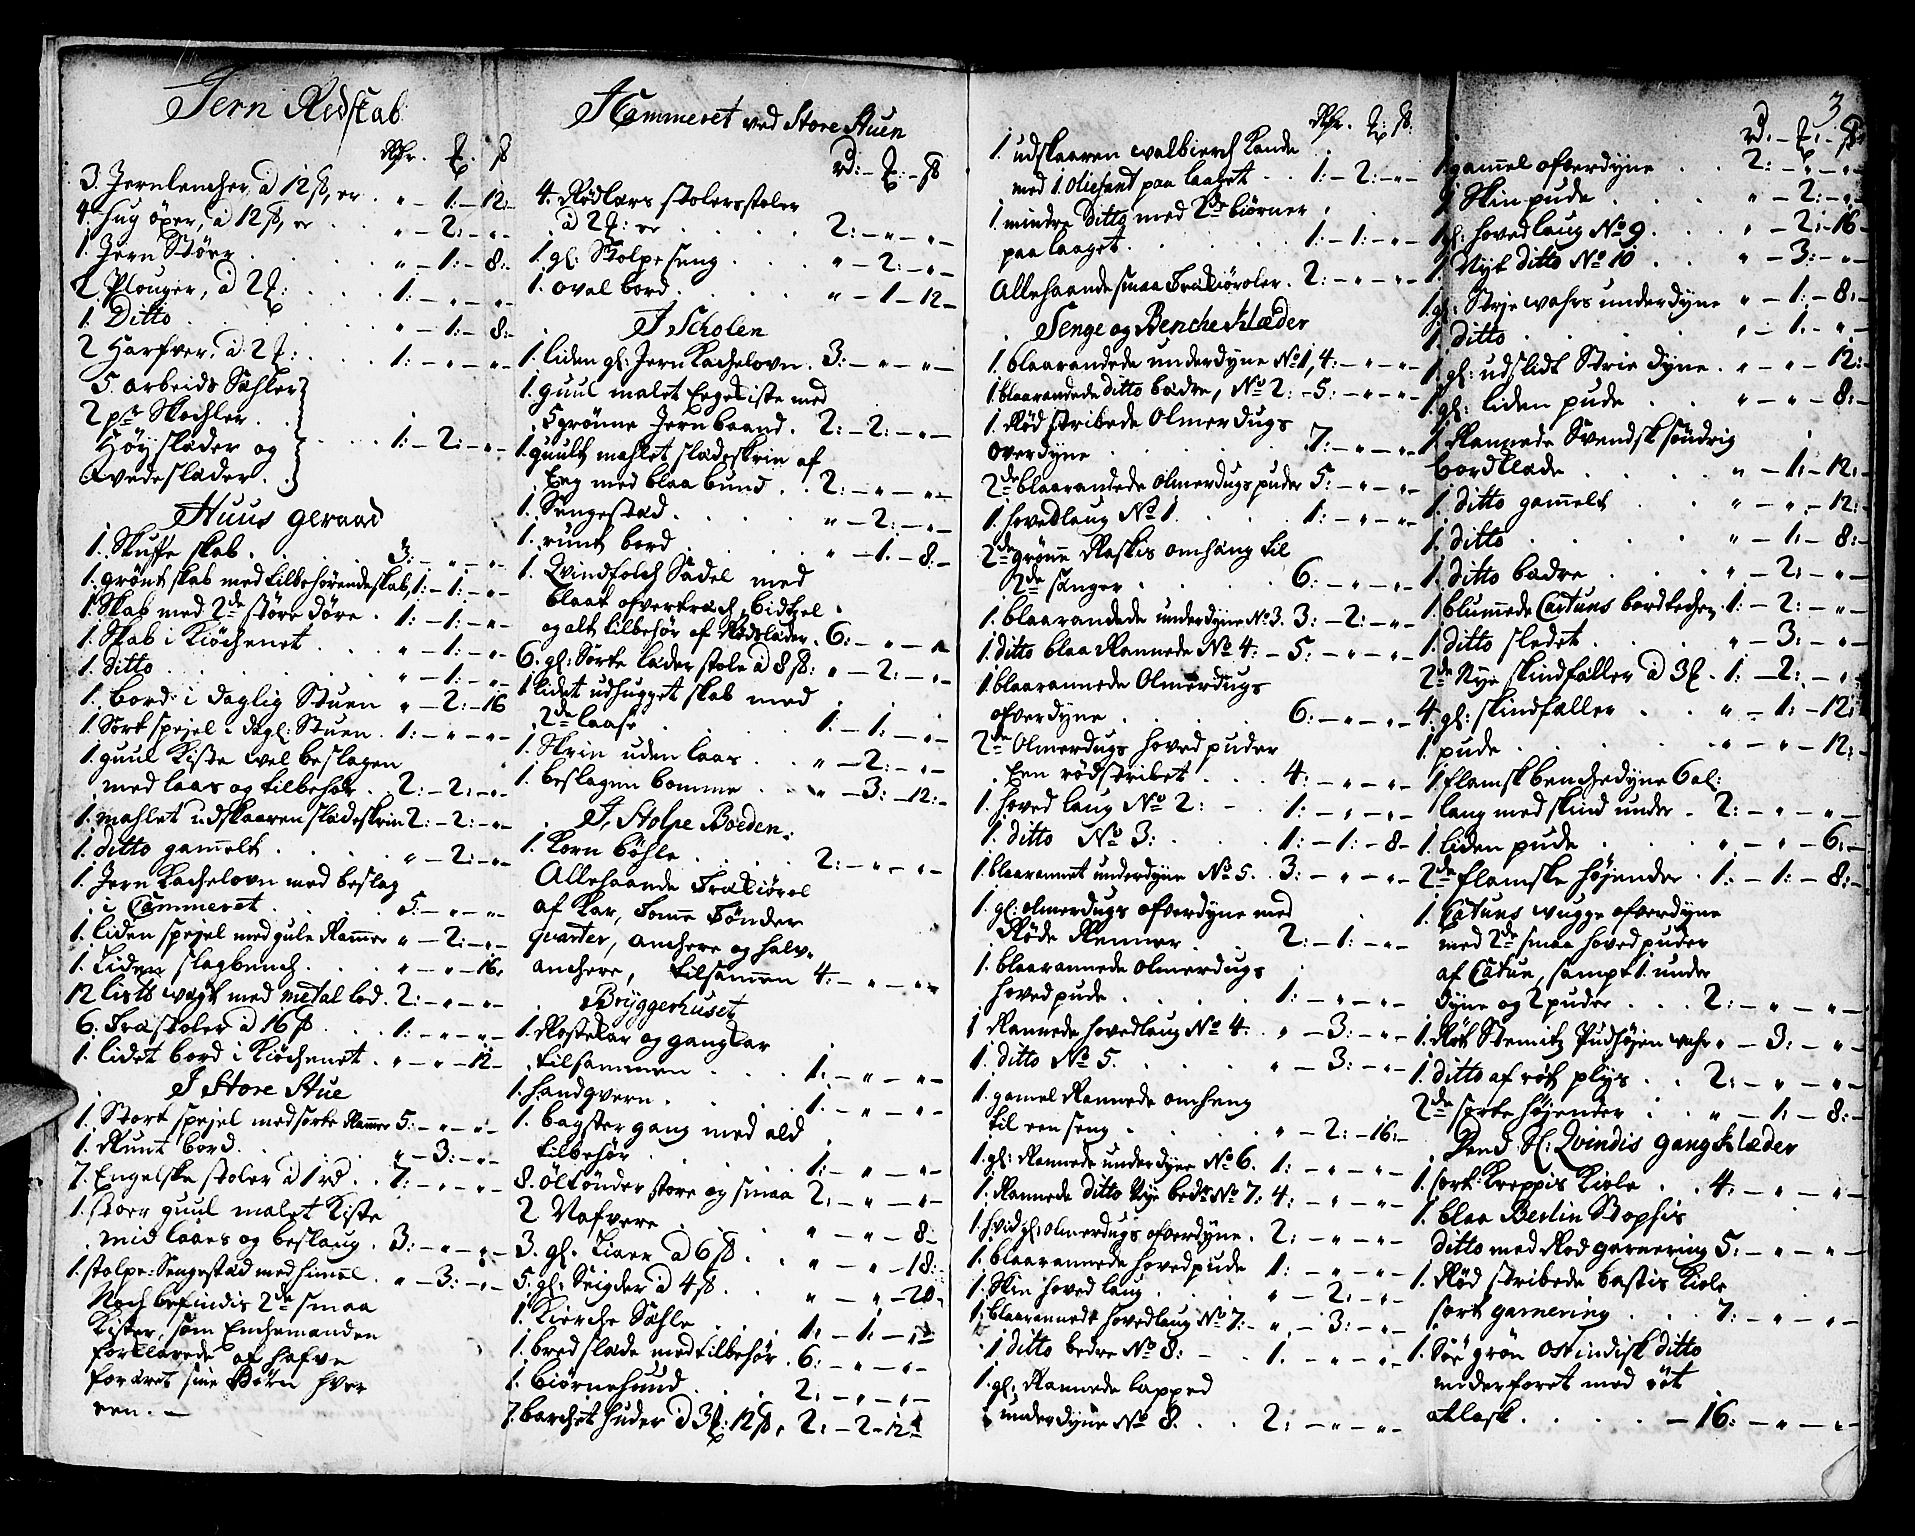 Jern Redskab
Rdr. ꝶ. ß
3. Jernlencher, á 12 ß, er . " – 1: – 12:-
4. hug öxer, á 12 ß, er . . " – 2: – "-
1. Jern Stöer . . . . " – 1: – 8:-
2. Plouger, á 2 ꝶ: . . . 1: – " – "-
1. Ditto . . . . . " – 1: – 8:-
2 Harfver, á 2 ꝶ: . . . 1: – " – "-
5. arbeids Sehler
2 pr Skochler . .
Höyslæder og . . 1: – 2: – "-
Avedeslæder . .
Huus geraad
1. Skuffe skab . . . . 3: – " – "-
1. grönt skab med tilbehörende skab, 1: – 1: – "-
1. Skab med 2de störe döre . 1: – 1: – "-
1. Skab i Kiöchenet . . . " – 1: – "-
1. ditto . . . . . " – 1: – "-
1. bord i daglig Stuen " – 2: – 16
1. Sort spejel i dagl: Stuen . 1: – " – "-
1. guul Kiste vel beslagen
med laas og tilbehör . . 2: – 2: – "-
1. mahlet udskaaren slædeskrin 2: – 2: – "-
1. ditto gamelt . . . . " – 2: – "-
1. Jern Kachelovn med beslag
i Cammeret . . . . 5: – " – "-
1. liden spejel med gule Rammer " – 2: – "-
1. Liden slagbench . . . " – " – 16:
12 lists vægt med metal lod . 2: – " – "-
6. Træstoler á 16 ß . . . 1: – " – "-
1. lidet bord i Kiöchenet . " – " – 12-
I Store Stue
1. Stort spejel med sorte Rammer 5: – " – "-
1. Runt bord . . . . . " – 3: – "-
7. Engelske stoler á 1 rd . . 7: – " – "-
1. stoer guul malet Kiste
med laaes og beslaug . 3: – " – "-
1. stolpe: Sengestad med himel . " – 3: – "-
Noch befindis 2de smaa
Kister, som Enchemanden
forklarede at hafve
foræret sine Börn hver
een. –
Kammeret ved Store Stuen
rd: – ꝶ: – ß
4. Rödlærs stolersstoler
á 2 ꝶ: er . . . . . 2: – " – "-
1. gl: Stolpe seng . . . " – 2: – "-
1. oval bord . . . . " – 1 – 12-
I Scholen
1. liden gl: Jern Kachelovn . 3: – " – "-
1. guul malet Eege Kiste med
5 grönne Jern baand . 2: – 2: – "-
1. guult mahlet slædeskrin af
Eeg med blaa bund . . 2: – " – "-
1. Sengestad . . . . " – 2: – "-
1. runt bord . . . . " – 1: – 8:-
1. Qvindfolch Sadel med
blaat ofvertræch, bidtzel
og alt tilbehör af Rödslæder . 6: – " – "-
6. gl: Sorte læder stole á 8 ß: " – 2: – "-
1. lidet udhugget skab med
2de laase . . . . 1: – 1: – "-
1. Skrin uden laas . . " – 2: – "-
1. beslagen bomme . . " – 3: – 12:-
I Stolpe Boeden
1. Korn böhle . . . . 2: – " – "-
Allehaande Trækiörel
af Kar, Tome Tönder
qvarter, anchere og halv-
anchere, tilsamen 4: – " – "-
Bryggerhuset
1. Rostekar og gangkar
tilsammen . . . 1: – " – "-
1. handqvern . . . . 1: – " – "-
1. bagster gang med ald
tilbehör . . . . . 1: – " – "-
8. öltönder store og smaa 2: – " – "-
2 Nafvere . . . . " – " – 8:-
3. gl. Liaer á 6 ß . . " – " – 18:-
5. gl: Seigder á 4 ß . . " – " – 20-
1. Kierche Sähle . . . 1: – 1: – "-
1. bredslæde med tilbehör . 6: – " – "-
1. biörnehuud . . . . 2: – " – "-
7. barchet huder á 3 ꝶ: 12 ß, 2: – 2 – 12
Rdr. ꝶ: ß:
1. udskaaren valbierch Kande
med 1. Oliefant paa laaget . . 1: – 2: – "-
1. mindre Ditto med 2de biörner
paa laaget . . . . . 1: – 1: – "-
Allehaande smaa Trækiöroler . 2: – " – "-
Senge og Benche Klæder
1. blaarandede underdyne No 1, 4: – " – "-
1. blaarandede ditto bædre, No 2: – 5: – " – "-
1. Röd stribede Olmerdugs
overdyne . . . . . 7: – " – "-
2de blaarandede Olmerdugs puder 5: – " – "-
1. hovedlaug No 1. . . . 1: – " – "-
2de grönne Raskis omhäng til
2de sänger . . . . . 6: – " – "-
1. blaarandede underdyne No 3. 3: – 2: – "-
1. ditto blaa Rannede No 4: – 5: – " – "-
1. blaarannede Olmerdugs
ofverdyne . . . . . 6: – " – "-
2de Olmerdugs hoved puder
Een rödstribet . . . 4: – " – "-
1. hoved laug No 2: – . 1: – " – "-
1. ditto No 3: . . . 1: – 1: – 8-
1. blaarannet underdyne No 5. . 3: – " – "-
1. gl: olmerdugs ofverdyne med
Röde Renner . . . 2: – 1: – "-
1. blaarannede Olmerdugs
hovedpude . . . . . 1: – " – "-
1 Rannede hovedlaug No 4. . " – 3: – "-
1. ditto No 5. . . . . " – 3: – "-
1. gamel Rannede omheng
til een seng . . . . " – 2: – 16:-
1. gl: Rannede underdyne No 6. 1: – " – "-
1. Rannede ditto Nye bedr No 7: 4: – " – "-
1. hvid gl: olmerdugs ofverdyne . 2: – " – "-
1. blaarannede hovedpude 1: – " – "-
1. Skin hoved laug . . . " – 2: – "-
1. blaarannede hovedlaug No 7: – " – 3: – "-
1 ditto bedre No 8: – . 1. – " – "-
1. gl: Rannede lapped
underdyne No 8. . . 2: – " – "-
3
rd. – ꝶ. – ß:
1 gamel ofverdyne . . 2: – " – "-
1 Skin pude . . . . " – 2: – "-
1 gl: hovedlaug No 9. . . " – 2: – 16-
1. Nyt ditto No 10 . . " – 3: – "-
1. gl: Strje vahrs underdyne " – 1: – 8:-
1. ditto . . . . . " – 1: – "-
1. gl: udslidt Strie dyne . " – " – 12:-
1. gl: liden pude . . . " – " – 8:-
1. Rannede Svensk söndrig
bordklæde . . . . " – 1: – 12:-
1. ditto gamelt . . . " – " – 12:-
1. ditto . . . . . " – 1: – 8:-
1. ditto bædre . . . . " – 2: – "-
1. blumede Cartuns bordtechen 1: – 2: – "-
1. ditto sledet . . . . " – 3: – "-
2de Nye skindfäller á 3 ꝶ . 1: – 2: – "-
4. gl: skindfäller . . . " – 1: – 12:-
1. pude . . . . . " – " – 12:-
1 flamsk benchedyne 6 al:
lang med skind under . 2: – " – "-
1. liden pude . . . . " – " – 6:-
2de flamske höjender . 1: – 1: – 8:-
1. Catuns vugge ofverdyne
med 2de smaa hoved puder
af Catun, sampt 1. under
dyne og 2 puder . . . 2: – " – "-
1. Röt Stemitz Pudhöjen vahr " – 3: – "-
1. ditto af röt plys . . 2: – " – "-
2de sorte höjender . . " – 1: – 8:-
Dend Sl: Qvindis gang klæder
1. sort Kreppis Kiole . . 4: – " – "-
1. blaa Berlin Stophis
ditto med Röd garnering 5: – " – "-
1. Röd stribede bastis Kiole
sort garnering . . . 7: – " – "-
1. Söe grön Ostindisk ditto
underforet med röt
atlask . . . . – 16: – " – "-